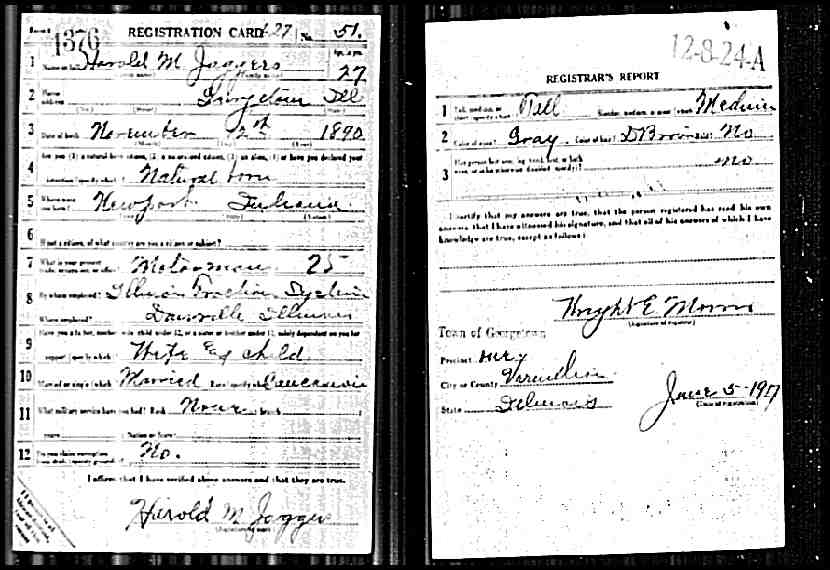 1376 REGISTRATION CARD 427 No. 51.
1 Harold M Jaggers 27
2 Georgetown Ill
3 Date of birth November 2nd 1890
4 Are you (1) a natural born citizen, (2) a naturalized citizen, (3) an alien, (4) or have you declared your
intention (specify which)? Natural born
5 Where were you born? Newport Indiana
6 If not a citizen, of what country are you a citizen or subject?
7 What is your present trade, occupation, or office? Motorman 25
8 By whom employed? Illinois Traction System
Where employed? Danville Illinois
9 Have you a father, mother, wife, child under 12, or a sister or brother under 12, solely dependent on you for
support (specify which)? Wife & child
10 Married or single (which)? Married Race (specify which)? Caucasian
11 What military service have you had? Rank None branch
years Nation or State
12 Do you claim exemption from draft (specify grounds)? No.
I affirm that I have verified above answers and that they are true.
Harold M Jaggers
(Signature or mark)
12-8-24-A
REGISTRAR'S REPORT
1 Tall, medium, or short (specify which)? Tall Slender, medium, or stout (which)? Medium
2 Color of eyes? Gray Color of hair? D Brown Bald? No
3 Has person lost arm, leg, hand, foot, or both eyes, or is he otherwise disabled (specify)? no
I certify that my answers are true, that the person registered has read his own
answers, that I have witnessed his signature, and that all of his answers of which I have
knowledge are true, except as follows:
(Signature of registrar)
Town of Georgetown
Precinct
City or County Vermilion
State Illinois June 5-1917
(Date of registration)